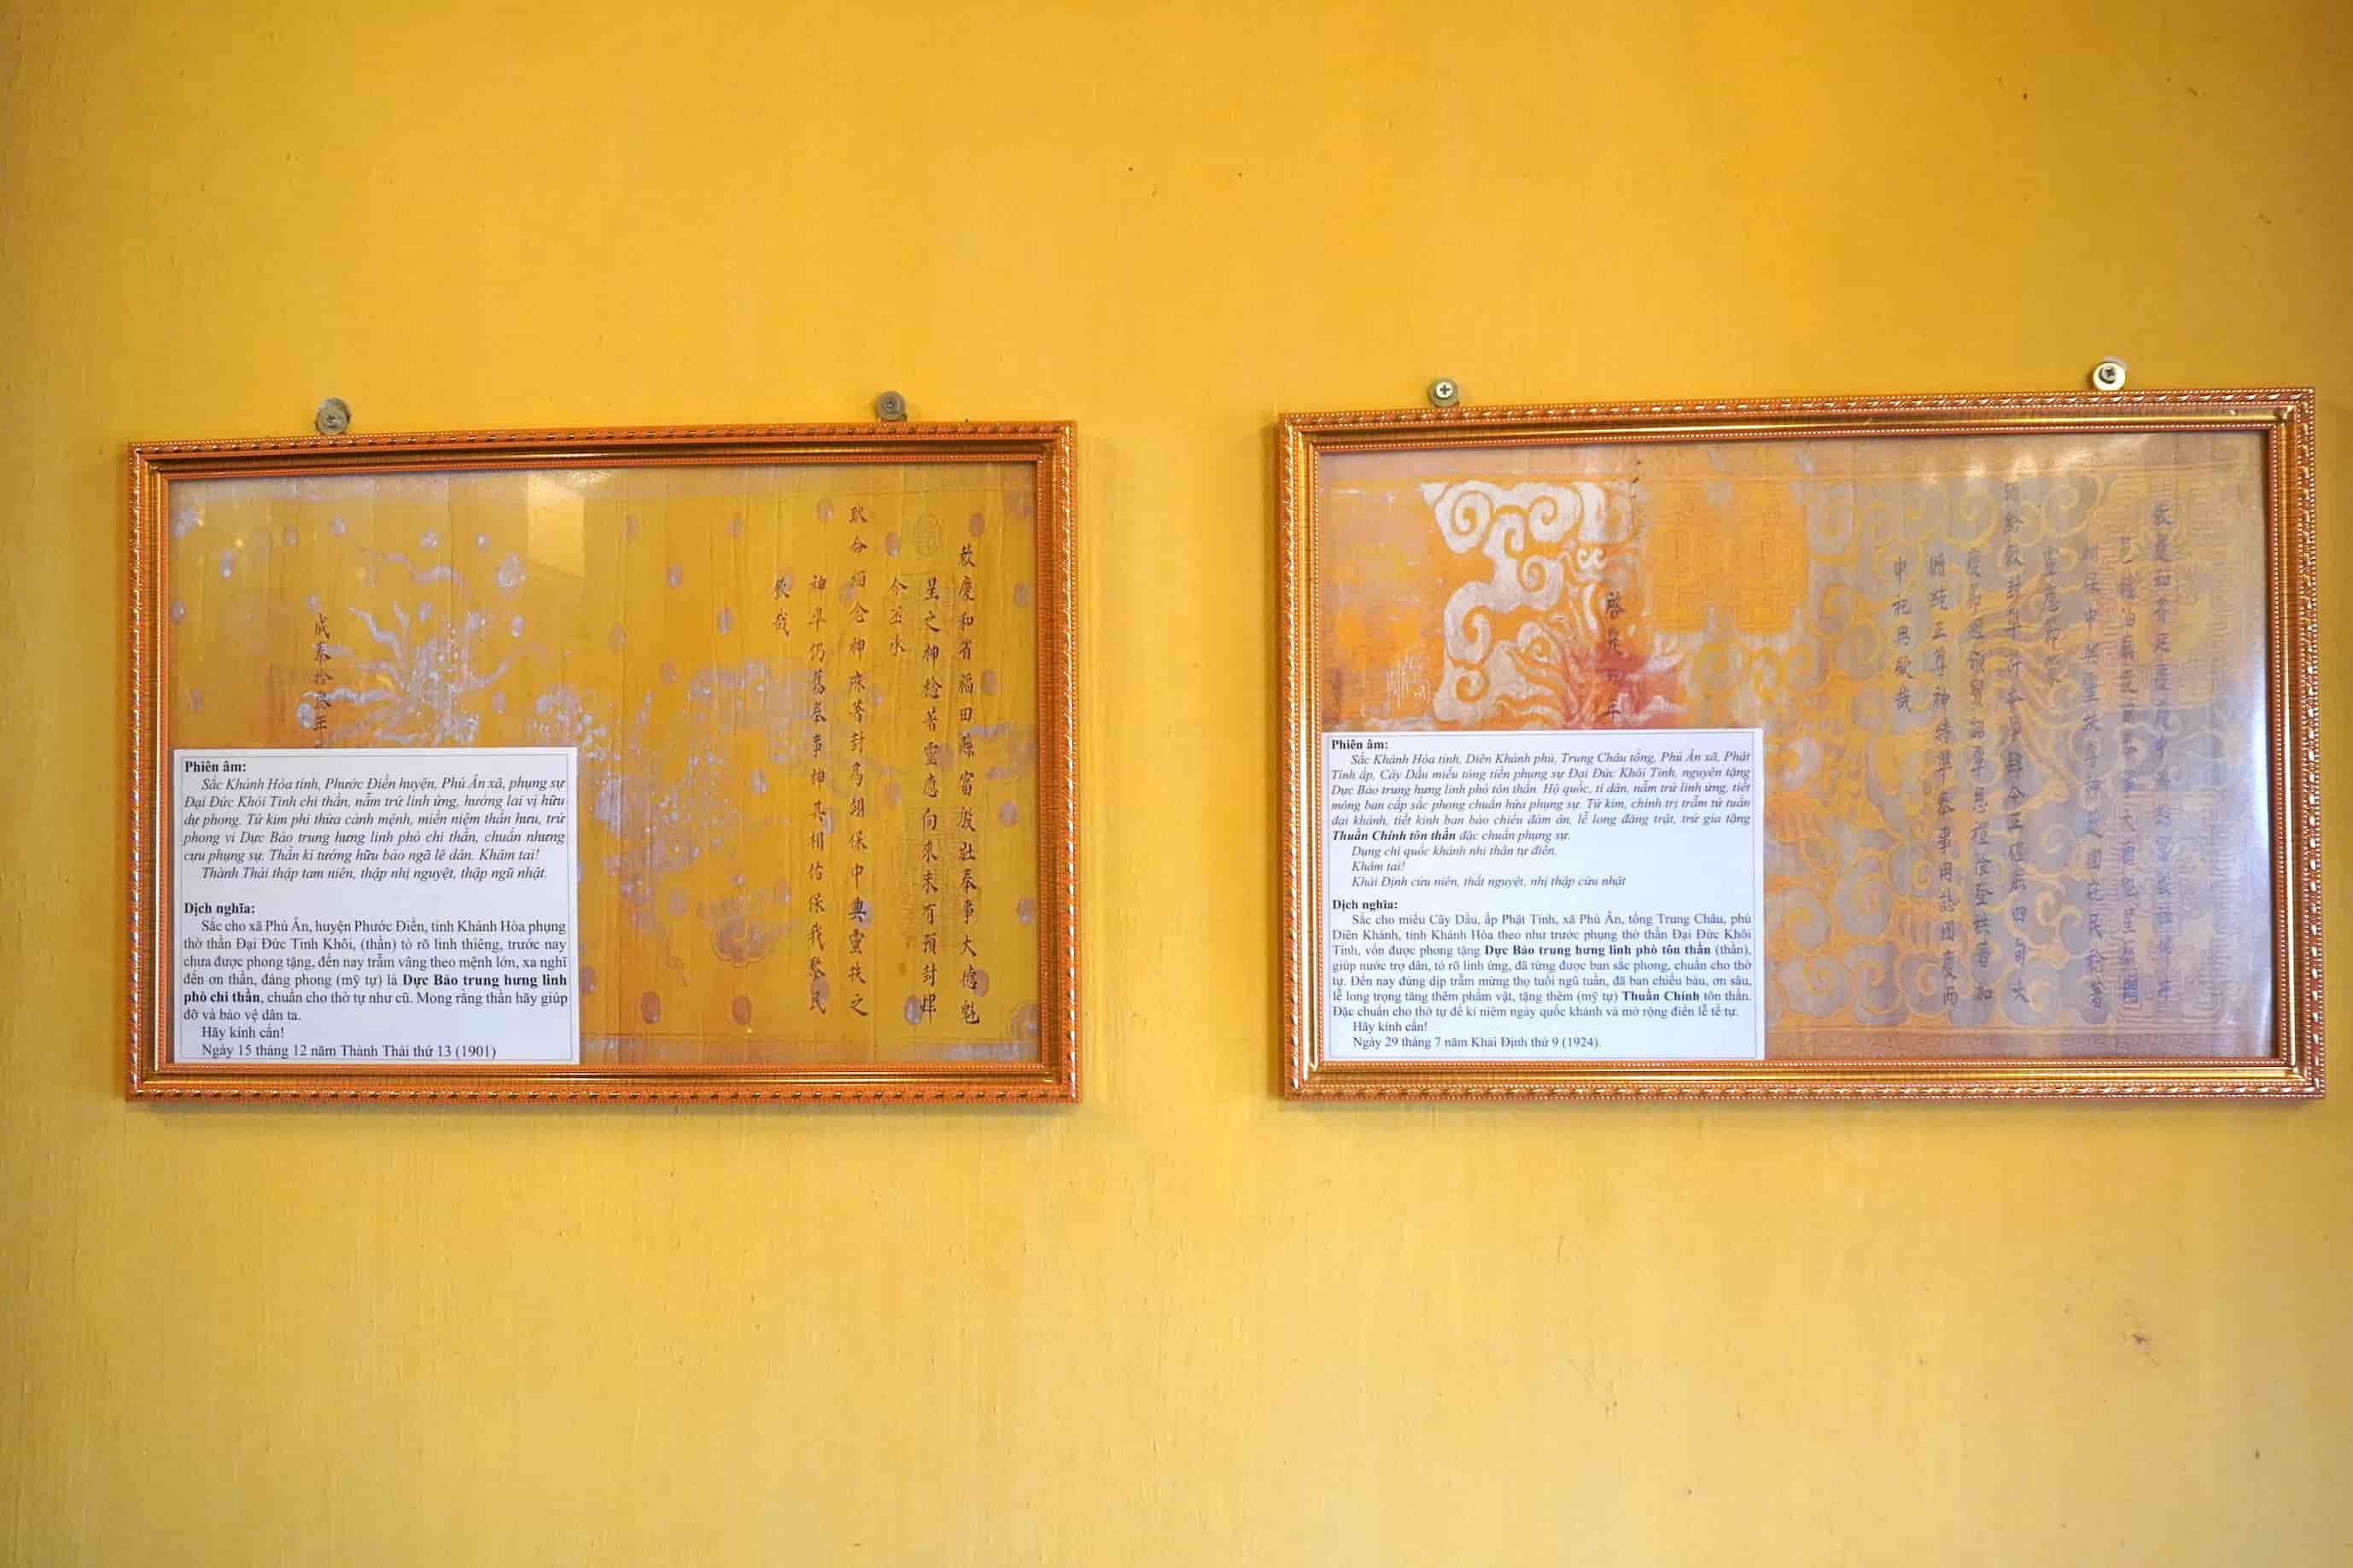 Phiên âm:
Sắc Khánh Hòa tỉnh, Phước Điền huyện, Phú Ân xã, phụng sự
Đại Đức Khôi Tinh chi thần, nẫm trứ linh ứng, hướng lai vị hữu
dự phong. Tứ kim phi thừa cảnh mệnh, miến niệm thần hưu, trứ
phong vi Dực Bảo trung hưng linh phò chi thần, chuẩn nhưng
cựu phụng sự. Thần kì tướng hữu bảo ngã lê dân. Khâm tai!
Thành Thái thập tam niên, thập nhị nguyệt, thập ngũ nhật.
Dịch nghĩa:
Sắc cho xã Phú Ân, huyện Phước Điền, tỉnh Khánh Hòa phụng
thờ thần Đại Đức Tinh Khôi, (thần) tỏ rõ linh thiêng, trước nay
chưa được phong tặng, đến nay trẫm vâng theo mệnh lớn, xa nghĩ
đến ơn thần, đáng phong (mỹ tự) là Dực Bảo trung hưng linh
phò chi thần, chuẩn cho thờ tự như cũ. Mong rằng thần hãy giúp
đỡ và bảo vệ dân ta.
Hãy kính cẩn!
Ngày 15 tháng 12 năm Thành Thái thứ 13 (1901)
敕慶和省福田縣富殷社奉事大德魁
星之神稔著靈應向來未有預封肆
今丕承
耿命緬念神庥著封為翊保中興靈扶之
神準仍舊奉事神其相佑保我黎民
欽哉
成泰拾叁年
Phiên âm:
Sắc Khánh Hòa tỉnh, Diên Khánh phủ, Trung Châu tổng, Phú Ân xã, Phật
Tỉnh ấp, Cây Dầu miếu tòng tiền phụng sự Đại Đức Khôi Tinh, nguyên tặng
Dực Bảo trung hưng linh phò tôn thần. Hộ quốc, tí dân, nẫm trứ linh ứng, tiết
mông ban cấp sắc phong chuẩn hứa phụng sự. Tứ kim, chính trị trẫm tứ tuần
đại khánh, tiết kinh ban bảo chiếu đàm ân, lễ long đăng trật, trứ gia tặng
Thuần Chính tôn thần đặc chuẩn phụng sự.
Dụng chí quốc khánh nhi thân tự điển.
Khâm tai!
Khải Định cửu niên, thất nguyệt, nhị thập cửu nhật
Dịch nghĩa:
Sắc cho miếu Cây Dầu, ấp Phật Tỉnh, xã Phú Ân, tổng Trung Châu, phủ
Diên Khánh, tỉnh Khánh Hòa theo như trước phụng thờ thần Đại Đức Khôi
Tinh, vốn được phong tặng Dực Bảo trung hưng linh phò tôn thần (thần),
giúp nước trợ dân, tỏ rõ linh ứng, đã từng được ban sắc phong, chuẩn cho thờ
tự. Đến nay đúng dịp trẫm mừng thọ tuổi ngũ tuần, đã ban chiếu báu, ơn sâu,
lễ long trọng tăng thêm phẩm vật, tặng thêm (mỹ tự) Thuần Chính tôn thần.
Đặc chuẩn cho thờ tự để kỉ niệm ngày quốc khánh và mở rộng điển lễ tế tự.
Hãy kính cẩn!
Ngày 29 tháng 7 năm Khải Định thứ 9 (1924).
靈應節蒙
頒給敕封準許奉事肆今正值朕四旬大
慶節經頒寶詔覃恩禮隆登秩著加
贈純正尊神特準奉事用誌國慶而
申祀典欽哉